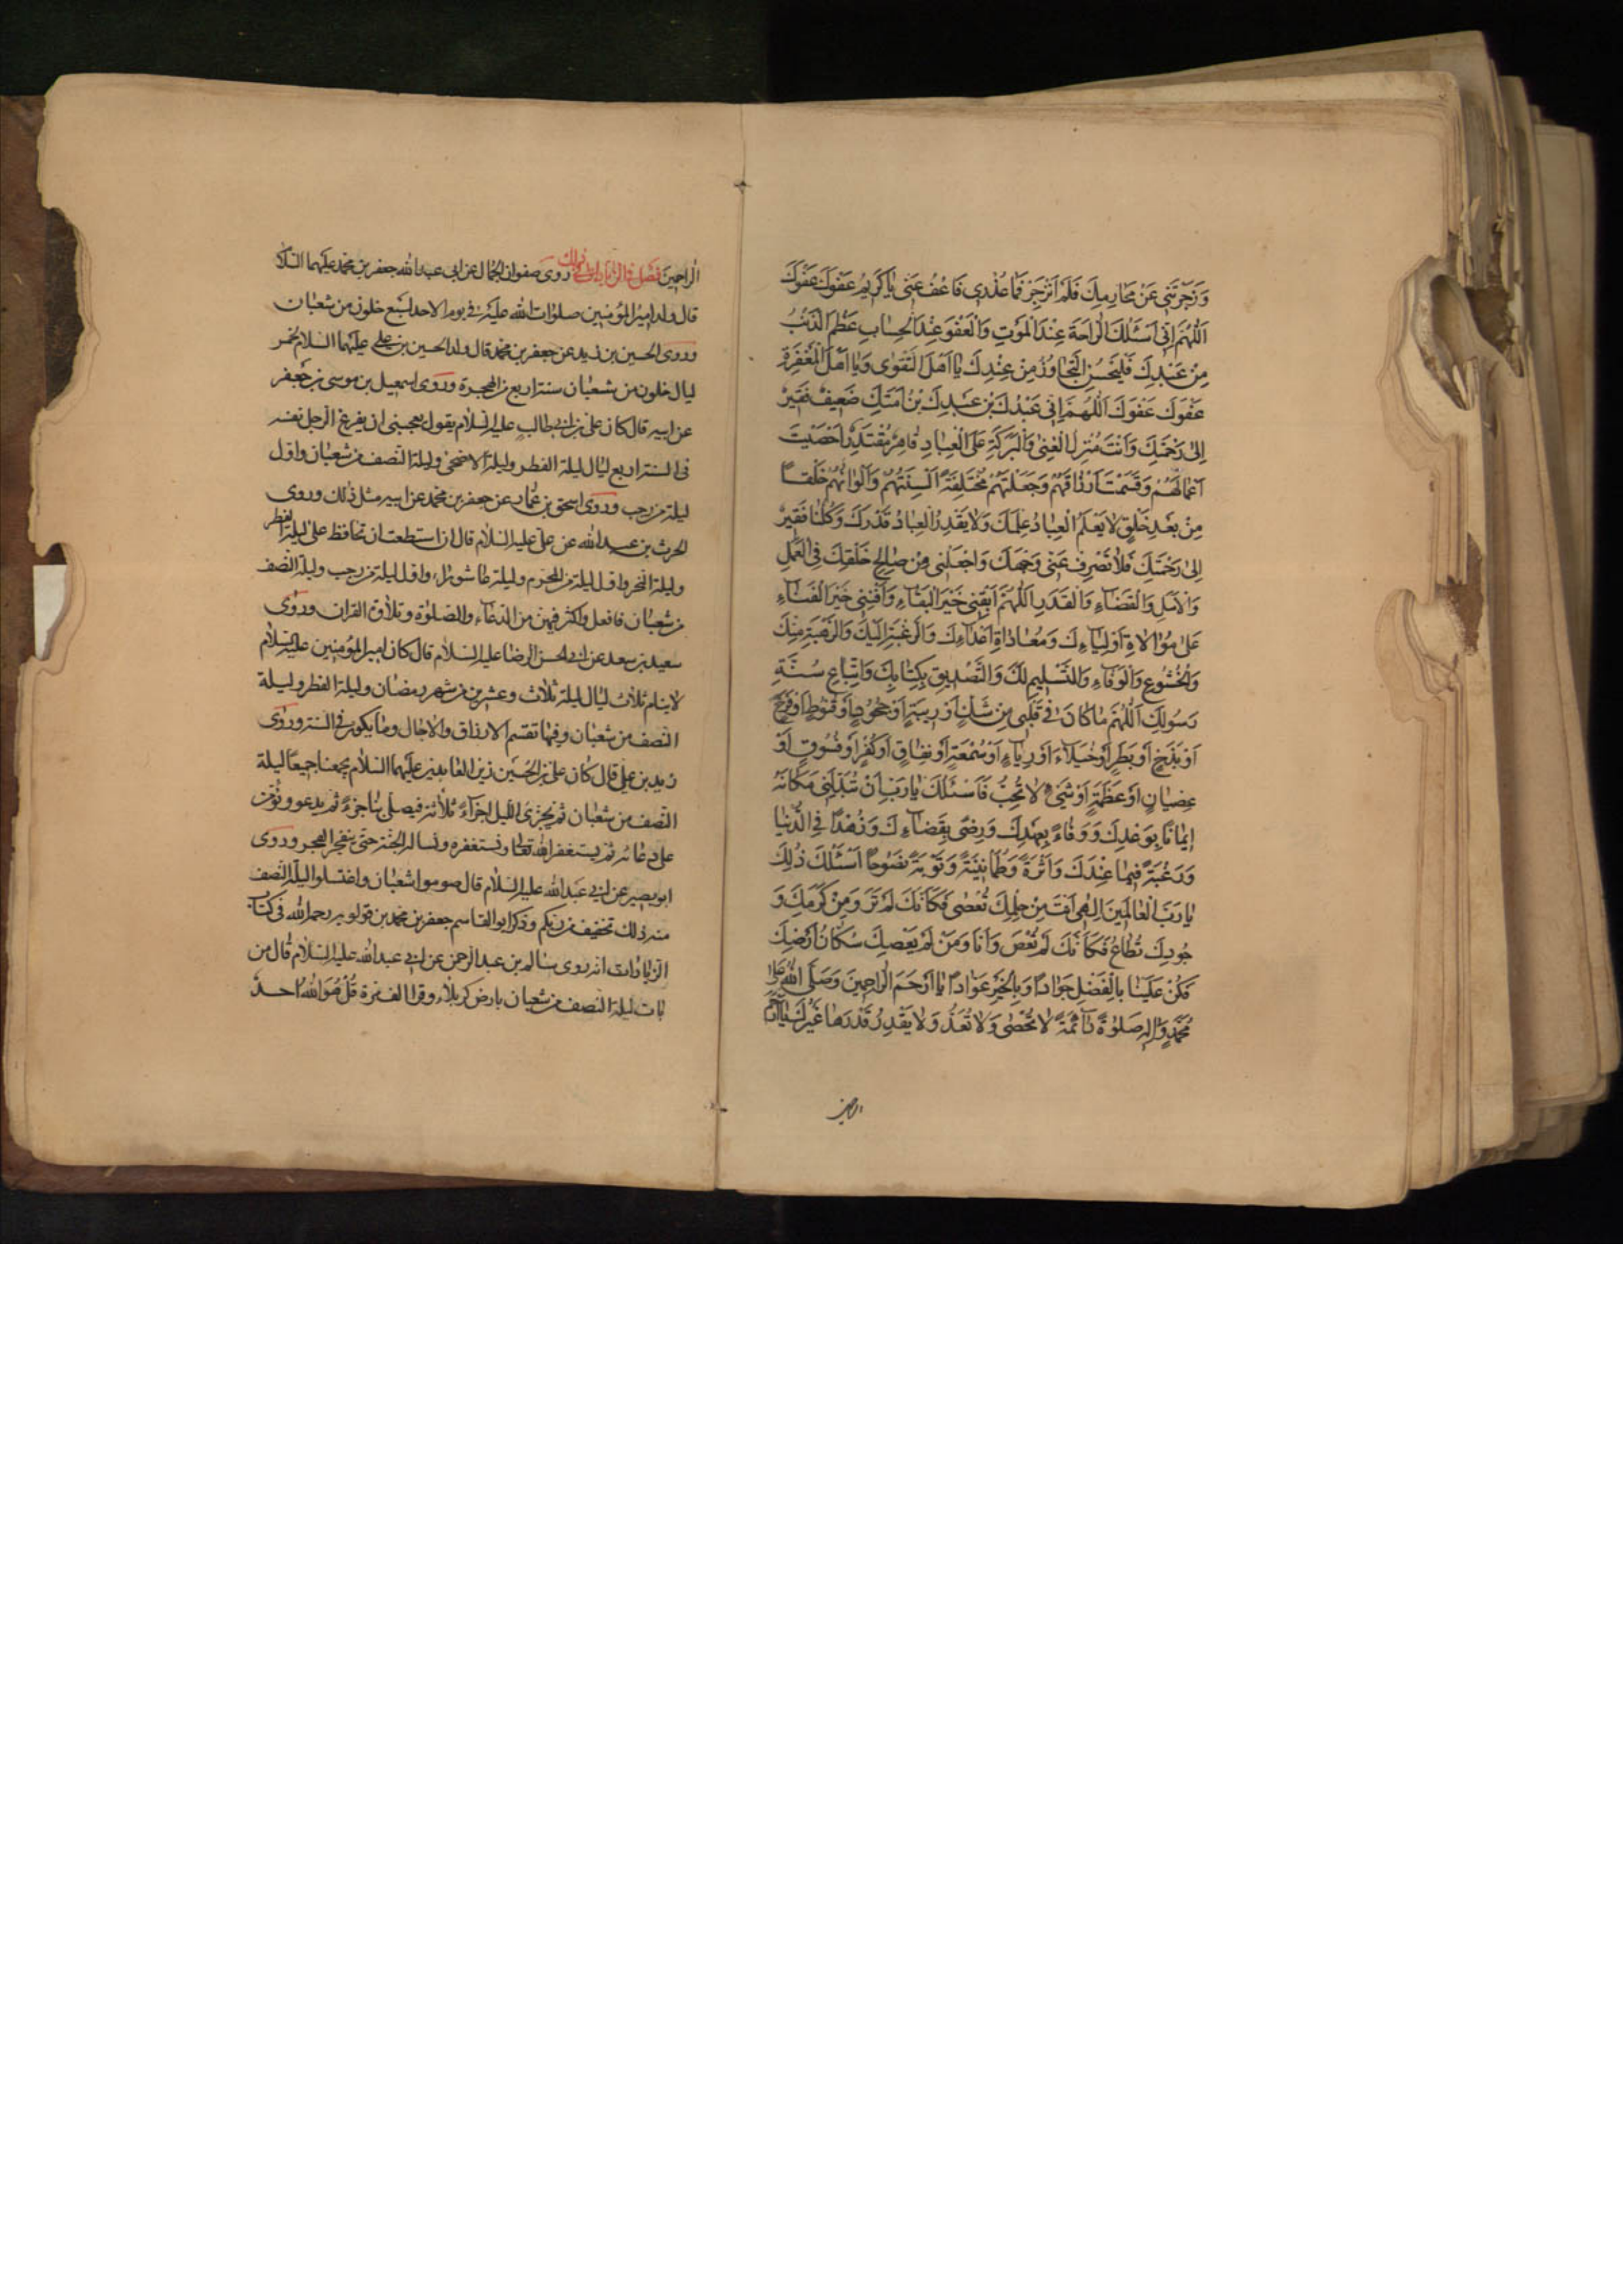 وَزَجَرْتَنِي عَنْ مَحَارِمِكَ فَلَمْ اَنْزَجِرْ فَمَا عُذْرِي فَاعْفُ عَنّي يَا كَرِيمُ عَفْوَكَ عَفْوَكَ
اَللّهُمَّ اِنّي اَسْئَلُكَ الرَّاحَةَ عِنْدَ الْمَوْتِ وَالْعَفْوَ عِنْدَ الْحِسَابِ عَظُمَ الذَّنْبُ
مِنْ عَبْدِكَ فَلْيَحْسُنِ التَّجَاوُزُ مِنْ عِنْدِكَ يَا اَهْلَ التَّقْوٰى وَيَا اَهْلَ الْمَغْفِرَةِ
عَفْوَكَ عَفْوَكَ اَللّهُمَّ اِنّي عَبْدُكَ بْنُ عَبْدِكَ بْنُ اَمَتِكَ ضَعِيفٌ فَقِيرٌ
اِلٰى رَحْمَتِكَ وَاَنْتَ مُنْزِلُ الْغِنٰى وَالْبَرَكَةِ عَلَى الْعِبَادِ قَاهِرٌ مُقْتَدِرٌ اَحْصَيْتَ
اَعْمَالَهُمْ وَقَسَمْتَ اَرْزَاقَهُمْ وَجَعَلْتَهُمْ مُخْتَلِفَةً اَلْسِنَتُهُمْ وَاَلْوَانُهُمْ خَلْقًا
مِنْ بَعْدِ خَلْقٍ لَا يَعْلَمُ الْعِبَادُ عِلْمَكَ وَلَا يَقْدِرُ الْعِبَادُ قَدْرَكَ وَكُلُّنَا فَقِيرٌ
اِلٰى رَحْمَتِكَ فَلَا تَصْرِفْ عَنّي وَجْهَكَ وَاجْعَلْنِي مِنْ صَالِحِ خَلْقِكَ فِي الْعَمَلِ
وَالْاَمَلِ وَالْقَضَاءِ وَالْقَدَرِ اَللّهُمَّ اَبْقِنِي خَيْرَ الْبَقَاءِ وَاَفْنِنِي خَيْرَ الْفَنَاءِ
عَلٰى مُوَالَاةِ اَوْلِيَاءِكَ وَمُعَادَاةِ اَعْدَاءِكَ وَالرَّغْبَةِ اِلَيْكَ وَالرَّهْبَةِ مِنْكَ
وَالْخُشُوعِ وَالْوَفَاءِ وَالتَّسْلِيمِ لَكَ وَالتَّصْدِيقِ بِكِتَابِكَ وَاتِّبَاعِ سُنَّةِ
رَسُولِكَ اَللّهُمَّ مَا كَانَ فِي قَلْبِي مِنْ شَكٍّ اَوْ رِيبَةٍ اَوْ جُحُودٍ اَوْ قُنُوطٍ اَوْ فَرَحٍ
اَوْ بَذَخٍ اَوْ بَطَرٍ اَوْ خُيَلَاءَ اَوْ رِيَاءٍ اَوْ سُمْعَةٍ اَوْ نِفَاقٍ اَوْ كُفْرٍ اَوْ فُسُوقٍ اَوْ
عِصْيَانٍ اَوْ عَظَمَةٍ اَوْ شَيْءٍ لَا تُحِبُّ فَاَسْئَلُكَ يَا رَبِّ اَنْ تُبَدِّلَنِي مَكَانَهُ
اِيمَانًا بِوَعْدِكَ وَوَفَاءً بِعَهْدِكَ وَرِضًى بِقَضَاءِكَ وَزُهْدًا فِي الدُّنْيَا
وَرَغْبَةً فِيمَا عِنْدَكَ وَاَثَرَةً وَطُمَأْنِينَةً وَتَوْبَةً نَصُوحًا اَسْئَلُكَ ذٰلِكَ
يَا رَبَّ الْعَالَمِينَ اِلٰهِي اَنْتَ مِنْ حِلْمِكَ تُعْصٰى فَكَاَنَّكَ لَمْ تَرَ وَمِنْ كَرَمِكَ وَ
جُودِكَ تُطَاعُ فَكَاَنَّكَ لَمْ تُعْصَ وَاَنَا وَمَنْ لَمْ يَعْصِكَ سُكَّانُ اَرْضِكَ
فَكُنْ عَلَيْنَا بِالْفَضْلِ جَوَادًا وَبِالْخَيْرِ عَوَّادًا يَا اَرْحَمَ الرَّاحِمِينَ وَصَلَّى اللّهُ عَلٰى
مُحَمَّدٍ وَآلِهِ صَلٰوةً دَائِمَةً لَا تُحْصٰى وَلَا تُعَدُّ وَلَا يَقْدِرُ قَدْرَهَا غَيْرُكَ يَا اَرْحَمَ
الراحمين
الرَّاحِمِينَ فصل في الزيادات في ذلك روى صفوان الجمال عن ابى عبد الله جعفر بن محمد عليهما السلام
قال ولد امير المؤمنين صلوات الله عليه في يوم الاحد لسبع خلون من شعبان
وروى الحسين بن زيد عن جعفر بن محمد قال ولد الحسين بن علي عليهما السلام لخمس
ليال خلون من شعبان سنة اربع من الهجرة وروى اسمعيل بن موسى بن جعفر
عن ابيه قال كان علي بن ابي طالب عليه السلام يقول يعجبني ان يفرغ الرجل نفسه
في السنة اربع ليال ليلة الفطر وليلة الاضحى وليلة النصف من شعبان واول
ليلة من رجب وروى اسحق بن عمار عن جعفر بن محمد عن ابيه مثل ذلك وروى
الحرث بن عبد الله عن علي عليه السلام قال ان استطعت ان تحافظ على ليلة الفطر
وليلة النحر واول ليلة من المحرم وليلة عاشورا، واول ليلة من رجب وليلة النصف
من شعبان فافعل واكثر فيهن من الدعاء والصلوة وتلاوة القران وروى
سعيد بن سعد عن ابي الحسن الرضا عليه السلام قال كان امير المؤمنين عليه السلام
لا ينام ثلاث ليال ليلة ثلاث وعشرين من شهر رمضان وليلة الفطر وليلة
النصف من شعبان وفيها تقسم الارزاق والاجال وما يكون في السنة وروى
زيد بن علي قال كان علي بن الحسين زين العابدين عليهما السلام يجمعنا جميعا ليلة
النصف من شعبان ثم يجزى الليل اجزآء ثلاثة فيصلي بنا جزءً ثم يدعو ونؤمن
على دعائه ثم يستغفر الله تعالى ونستغفره ونساله الجنة حتى ينفجر الفجر وروى
ابو بصير عن ابي عبد الله عليه السلام قال صوموا شعبان واغتسلوا ليلة النصف
منه ذلك تخفيف من ربكم وذكر ابو القاسم جعفر بن محمد بن قولويه رحمه الله في كتاب
الزيادات انه روى سالم بن عبد الرحمن عن ابي عبد الله عليه السلام قال من
بات ليلة النصف من شعبان بارض كربلاء وقرا الف مرة قُلْ هُوَ اللّهُ اَحَدٌ